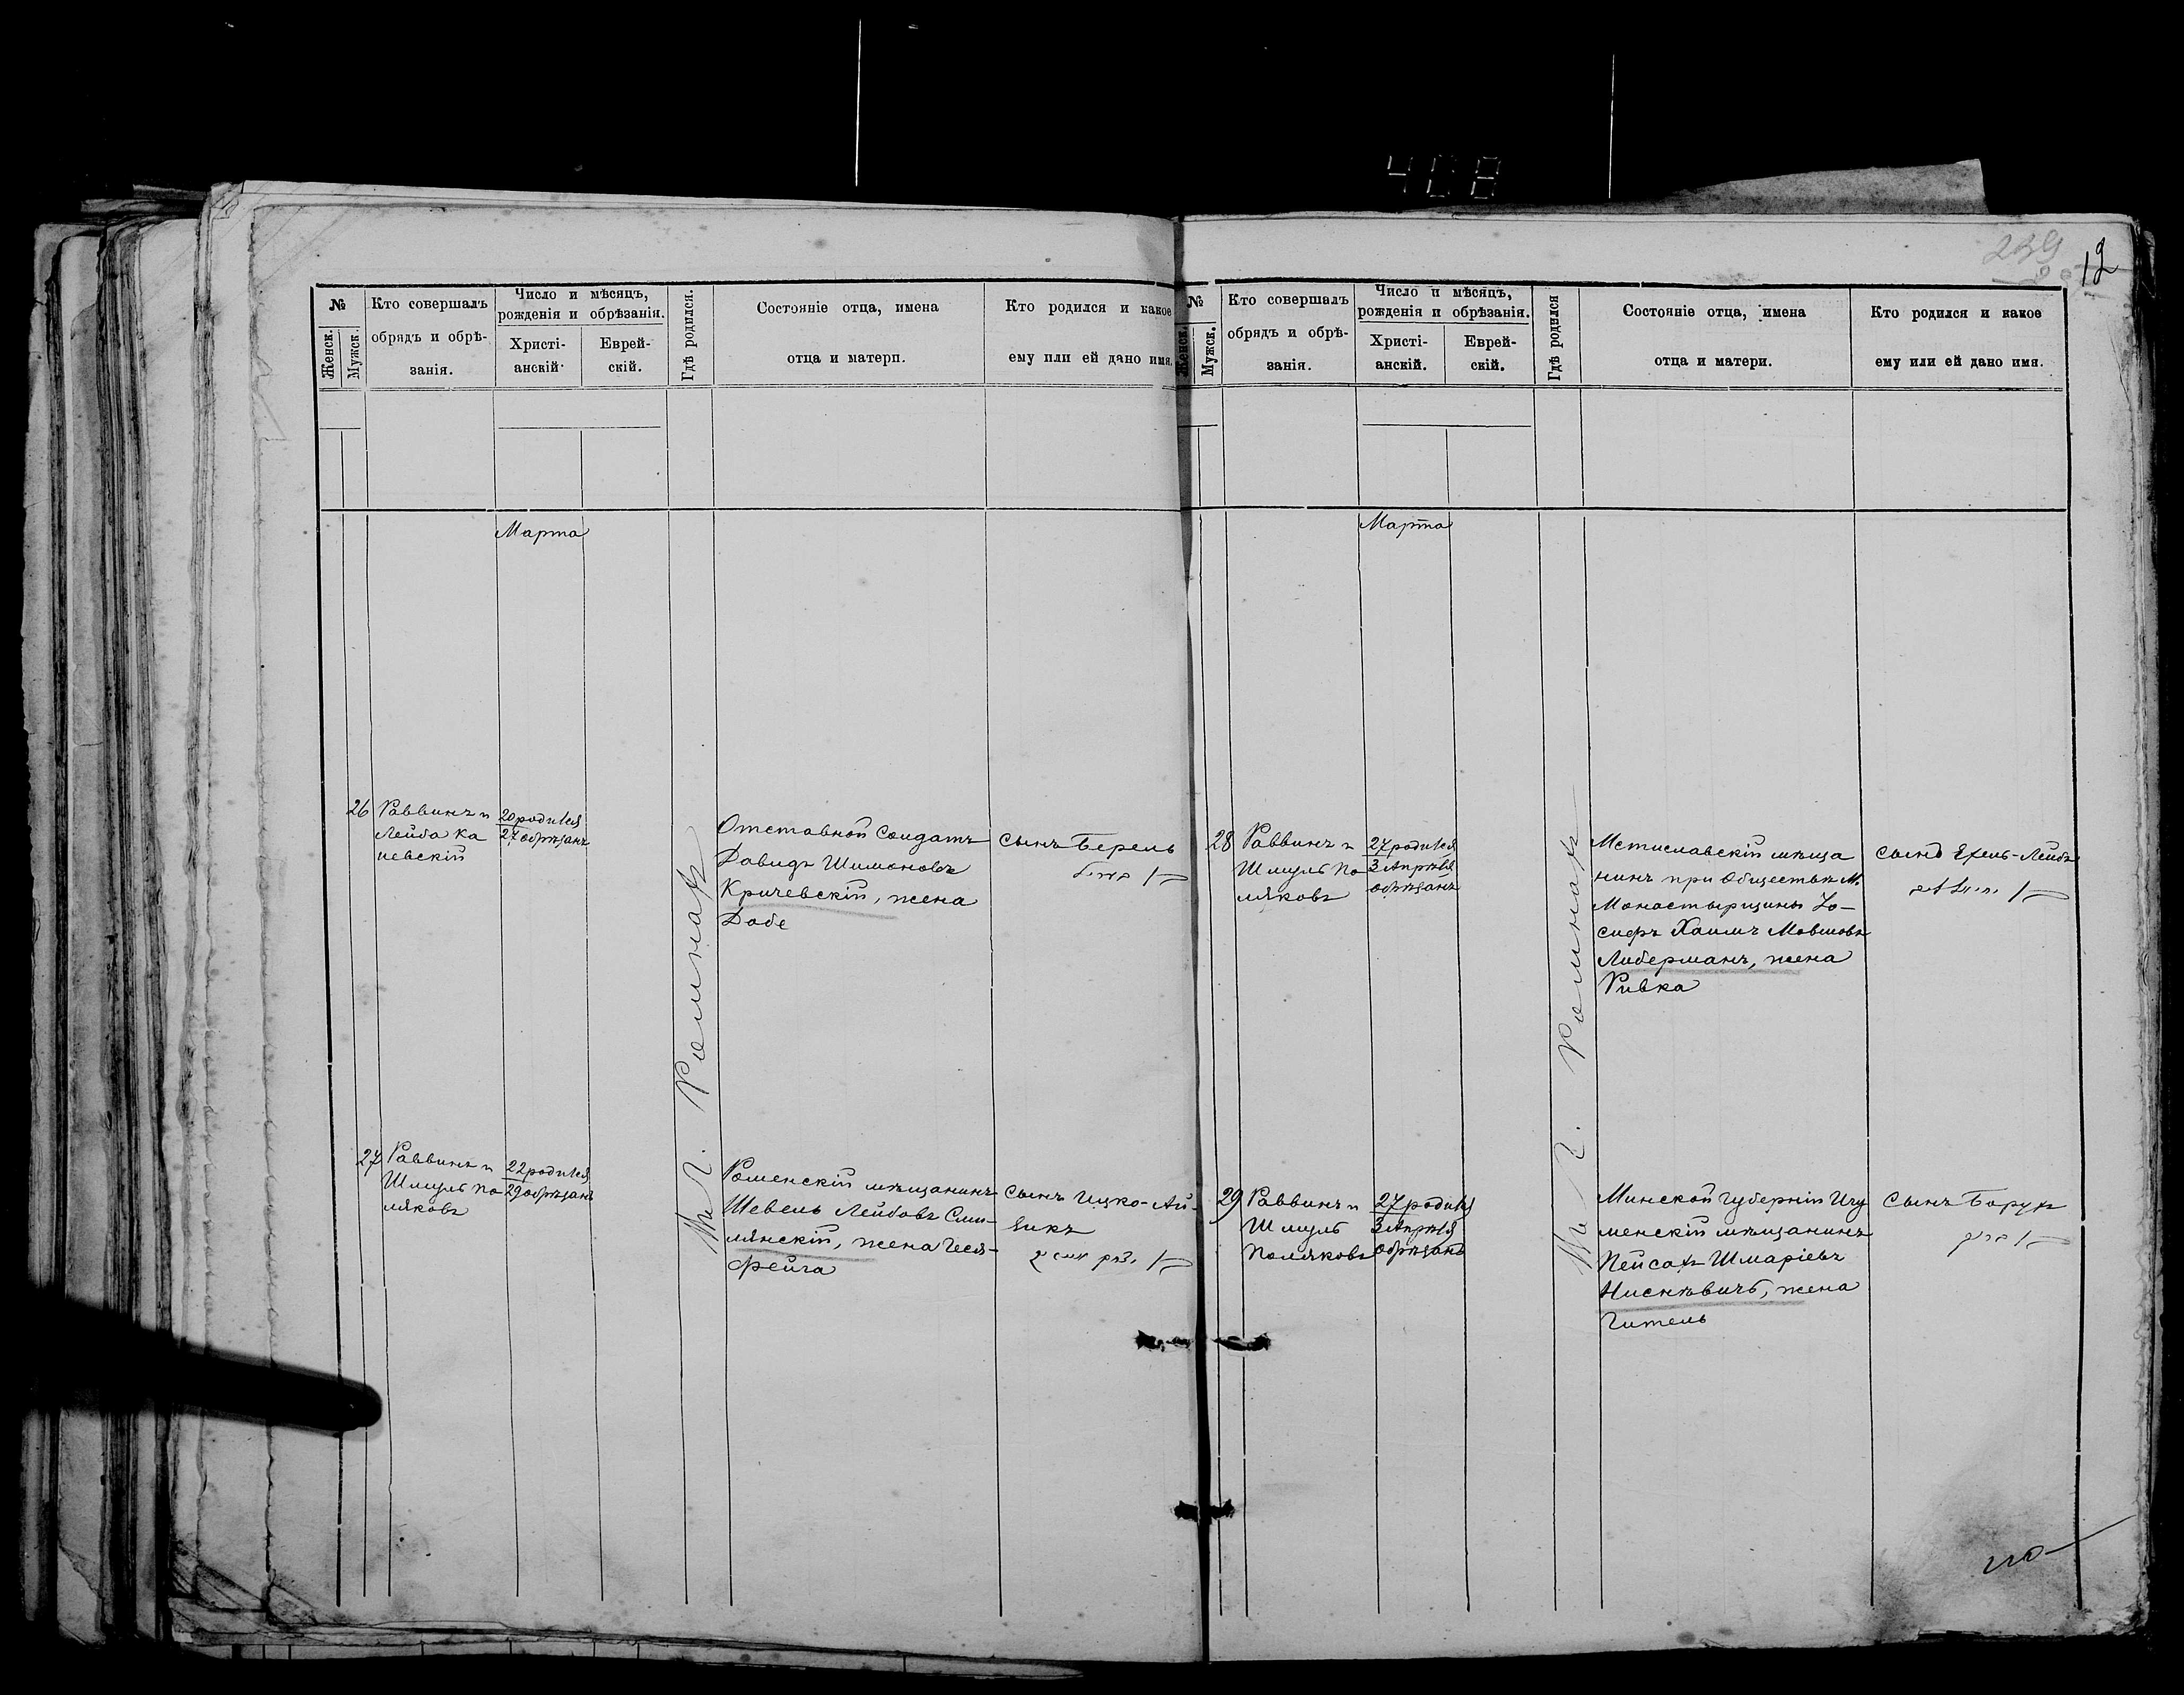 408
239
12
№
Женск.
Мужск.
Кто совершалъ
обрядъ и обрѣ-
занія.
Число и мѣсяцъ,
рожденія и обрѣзанія.
Христі-
анскій.
Еврей-
скій.
Гдѣ родился.
Состояніе отца, имена
отца и матери.
Кто родился и какое
ему или ей дано имя.
Марта
26
Раввинъ и
Лейба Ка
невскій
20 родился
27 обрѣзанъ
Отставной Солдатъ
Давидъ Шимоновъ
Кричевскій, жена
Добе
сынъ Берель
27
Раввинъ и
Шмуль По
ляковъ
22 родился
29 обрѣзанъ
Роменскій мѣщанинъ
Шевель Лейбовъ Сми-
лянскій, жена Геся-
Фейга
сынъ Ицко-Ай-
зикъ
въ г. Ромнахъ
№
Женск.
Мужск.
Кто совершалъ
обрядъ и обрѣ-
занія.
Число и мѣсяцъ,
рожденія и обрѣзанія.
Христі-
анскій.
Еврей-
скій.
Гдѣ родился
Состояніе отца, имена
отца и матери.
Кто родился и какое
ему или ей дано имя.
Марта
28
Раввинъ и
Шмуль По
ляковъ
27 родился
3 Апрѣля
обрѣзанъ
Мстиславскій мѣща
нинъ при Обществѣ М.
Монастырщины Іо-
сифъ Хаимъ Мовшовъ
Либерманъ, жена
Ривка
сынъ Ехель-Лейбъ
29
Раввинъ и
Шмуль
Поляковъ
27 родился
3 Апрѣля
обрѣзанъ
Минской Губерніи Игу
менскій мѣщанинъ
Пейсахъ Шмаріевъ
Нисневичъ, жена
Гитель
Сынъ Борухъ
въ г. Ромнахъ